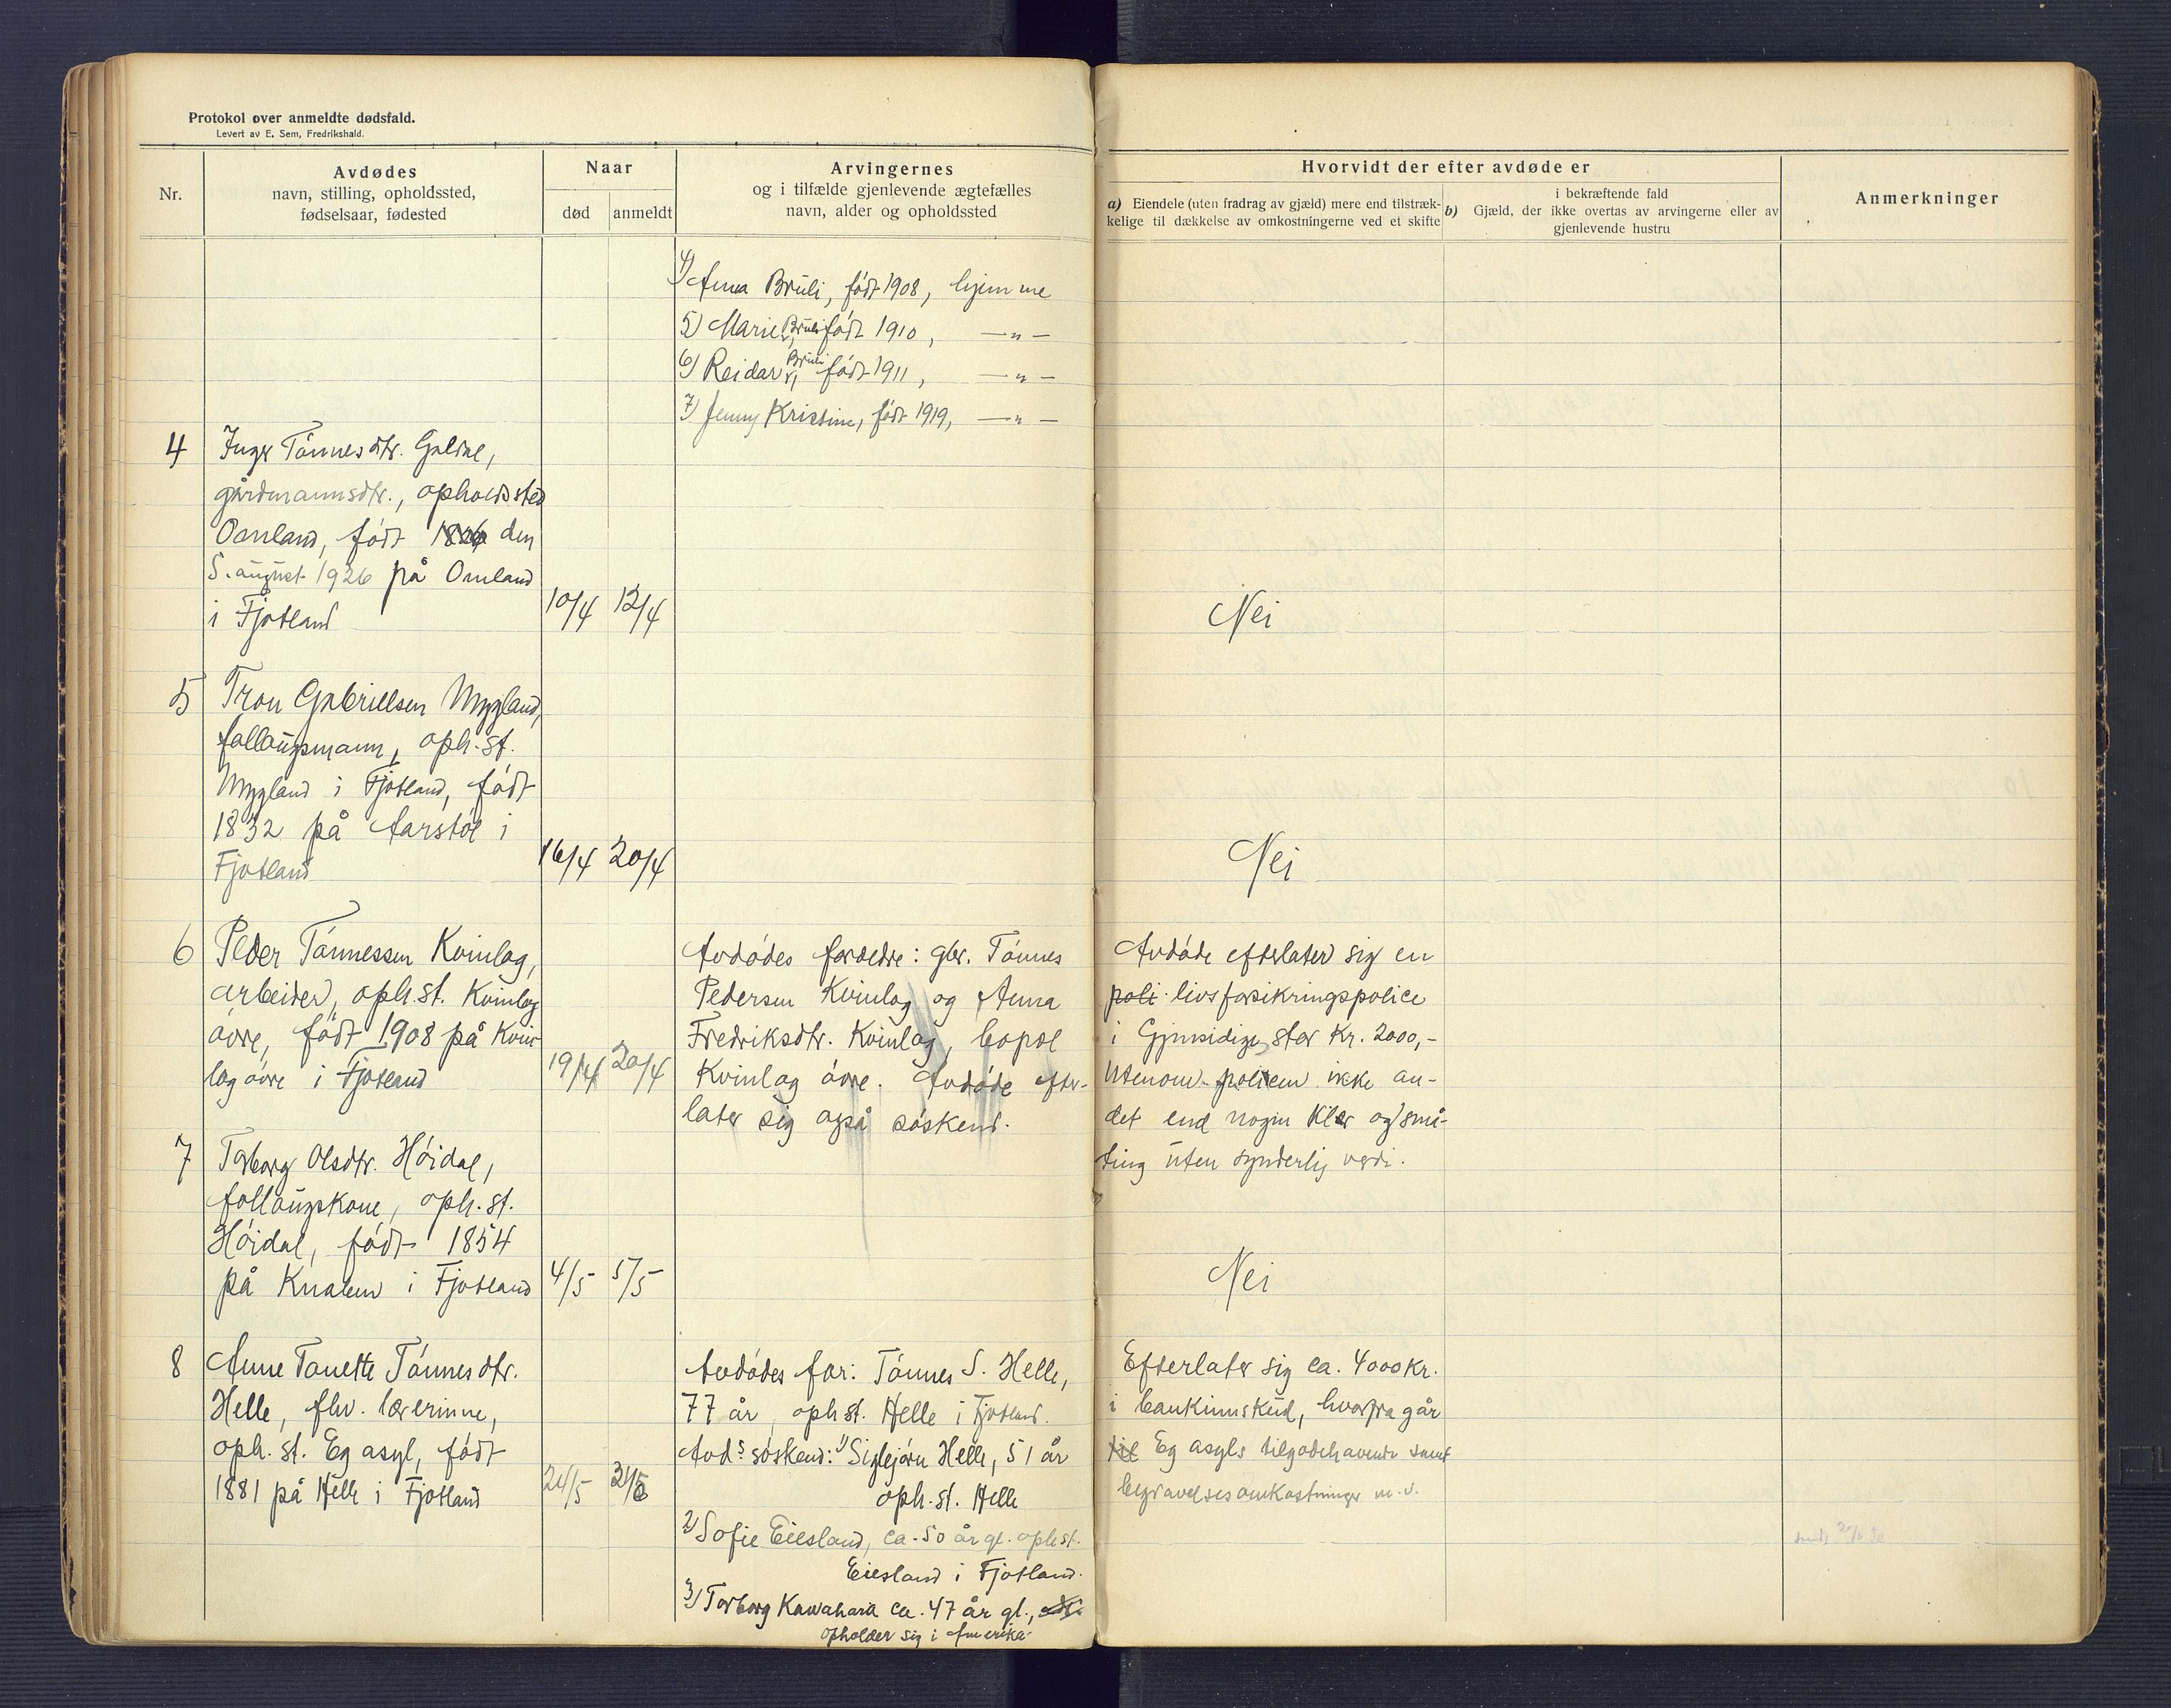 Protokol over anmeldte dødsfald.
Levert av E. Sem, Fredrikshald.
Nr.
Avdødes
navn, stilling, opholdssted,
fødselsaar, fødested
Naar
død
anmeldt
Arvingernes
og i tilfælde gjenlevende ægtefælles
navn, alder og opholdssted
Hvorvidt der efter avdøde er
a) Eiendele (uten fradrag av gjæld) mere end tilstræk-
kelige til dækkelse av omkostningerne ved et skifte
i bekræftende fald
b) Gjæld, der ikke overtas av arvingerne eller av
gjenlevende hustru
Anmerkninger
4) Anna Bruli, født 1908, hjemme
5) Marie Bruli født 1910, —"—
6) Reidar Bruli født 1911, —"—
7) Jenny Kristine, født 1919, —"—
4
Inger Tønnesdtr.
gårdmannsdtr., opholdssted
Omland, født den
5. august 1926 på Omland
i Fjotland
10/4 12/4
Nei
5
Tron Gabriellsen Mygland,
fallaugsmann, oph.st.
Mygland i Fjotland, født
1832 på Aarstøl i
Fjotland
16/4 20/4
Nei
6
Peder Tønnessen Kvinlog,
arbeider, oph.st. Kvinlog
øvre, født 1908 på Kvin-
log øvre i Fjotland
19/4 20/4
Avdødes foreldre: gbr. Tønnes
Pedersen Kvinlog og Anna
Fredriksdtr. Kvinlog, bopæl
Kvinlog øvre. Avdøde efter-
later sig også søskend.
Avdøde efterlater sig en
poli livsforsikringspolice
i Gjensidige stor Kr. 2000,-
Utenom policen ikke an-
det end nogen klær og små-
ting uten synderlig verdi.
7
Torborg Olsdtr. Høidal,
follaugskone, oph.st.
Høidal, født 1854
på Knaben i Fjotland
4/5 5/5
Nei
8
Anne Tonette Tønnesdtr.
Helle, fhv. lærerinne,
oph. st. Eg asyl, født
1881 på Helle i Fjotland
Avdødes far: Tønnes S. Helle,
77 år, oph st. Helle i Fjotland.
Avds søskend: 1) Siglejørn Helle, 51 år
oph. st. Helle
2) Sofie Eiesland, ca. 50 år gl. oph st.
Eiesland i Fjotland.
3) Torborg Kawahara ca. 47 år gl.,
opholder sig i Amerika
Efterlater sig ca. 4000 kr.
i bankinnskud, hvorfra går
til Eg asyls tilgodehavende samt
begravelsesomkostninger m. v.